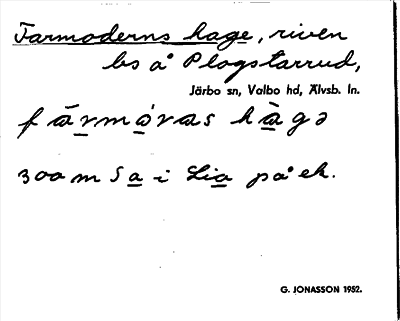 Farmoderns hage, riven
bs å Plogstarrud,
Järbo sn, Valbo hd, Älvsb. ln.
färmóras hàgə
300 m S a i Lia på ek.
G. JONASSON 1952.